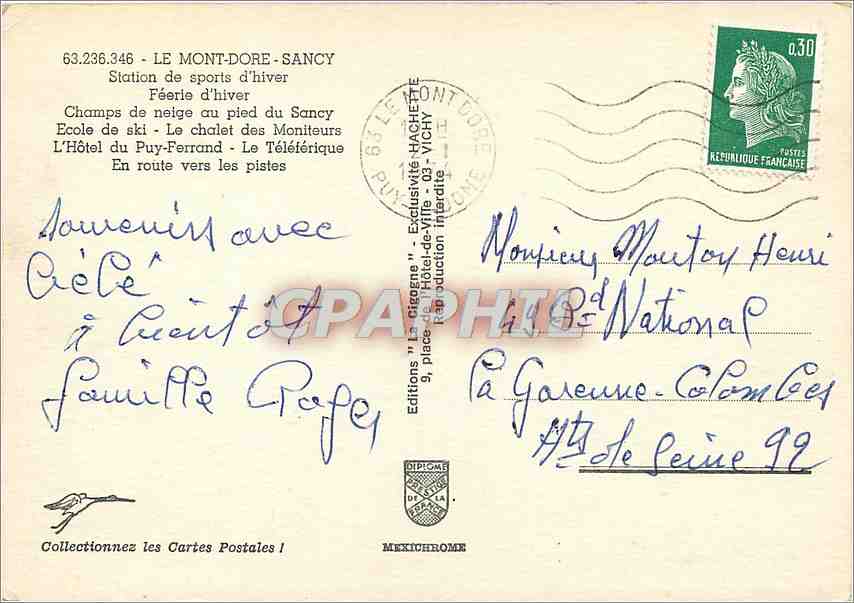 63.236.346 - LE MONT-DORE - SANCY
Station de sports d'hiver
Féerie d'hiver
Champs de neige au pied du Sancy
Ecole de ski - Le chalet des Moniteurs
L'Hôtel du Puy-Ferrand - Le Téléférique
En route vers les pistes
souvenirs avec
bébé
à bientôt
famille
Collectionnez les Cartes Postales !
63 LE MONT DORE
PUY DOME
Editions "La Cigogne" - Exclusivité HACHETTE
9, place de l'Hôtel-de-Ville - 03 - VICHY
Reproduction interdite
CPAPHIL
DIPLOME
PRESTIGE
DE LA
FRANCE
MEXICHROME
0,30
POSTES
REPUBLIQUE FRANÇAISE
Monsieur Mouton Henri
49 Bd National
La Garenne-Colombes
Hts de Seine 92